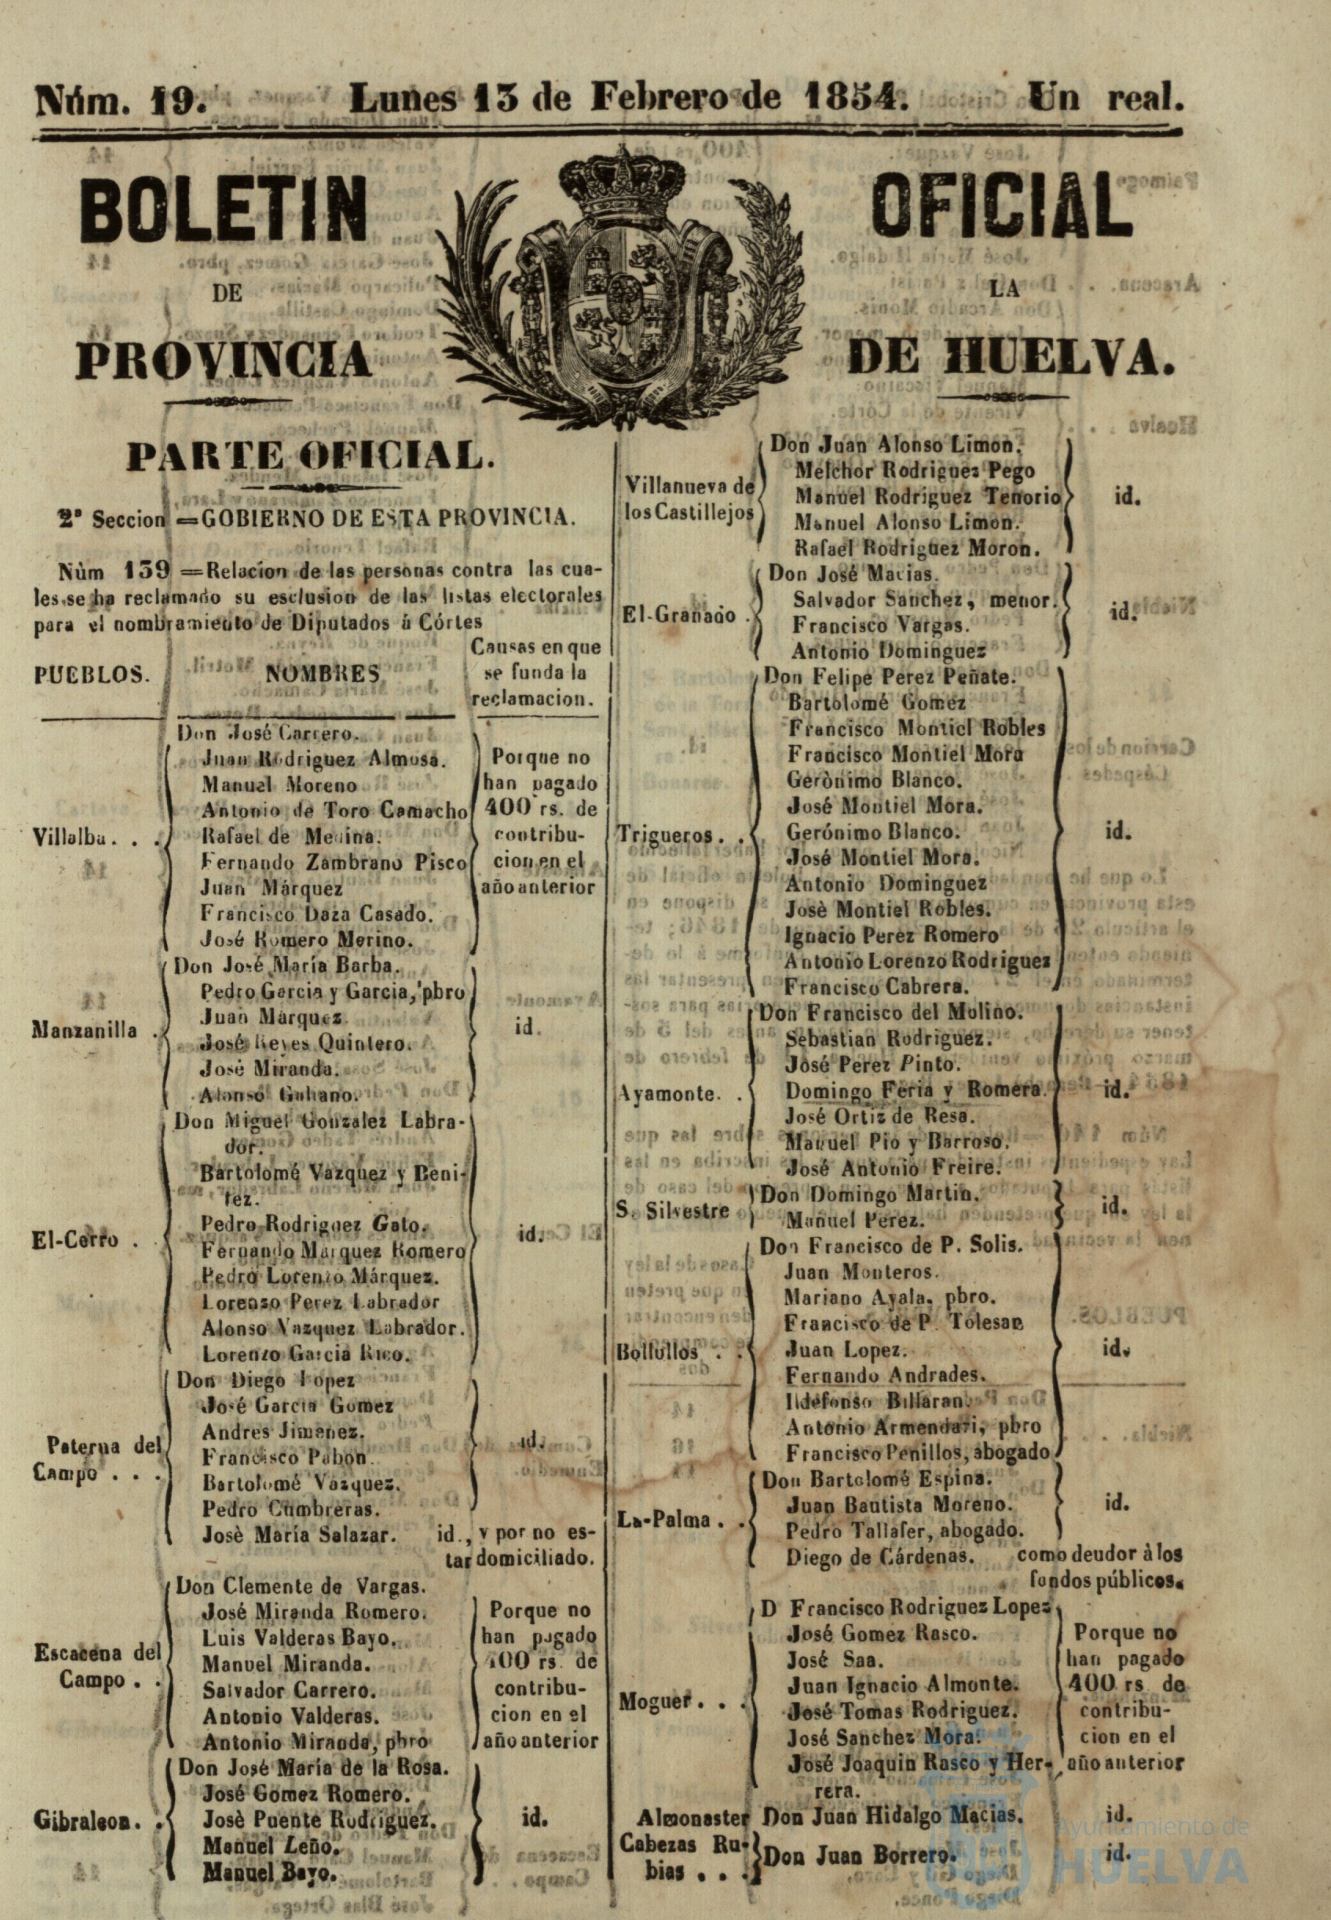 Núm. 19. Lunes 13 de Febrero de 1854. Un real.
BOLETIN OFICIAL
DE LA
PROVINCIA DE HUELVA.
PARTE OFICIAL.
2ª Seccion =GOBIERNO DE ESTA PROVINCIA.
Nùm 139 =Relacion de las personas contra las cua-
les se ha reclamado su esclusion de las listas electorales
para el nombramiento de Diputados à Córtes
PUEBLOS. NOMBRES Causas en que
se funda la
reclamacion.
Villalba. . .
Don José Carrero.
Juan Rodriguez Almosa.
Manuel Moreno
Antonio de Toro Camacho
Rafael de Medina.
Fernando Zambrano Pisco
Juan Márquez
Francisco Daza Casado.
José Romero Merino.
Porque no
han pagado
400 rs. de
contribu-
cion en el
año anterior
Manzanilla .
Don José María Barba.
Pedro Garcia y Garcia, pbro
Juan Márquez.
José Reyes Quintero.
José Miranda.
Alonso Galiano.
id.
El-Cerro .
Don Miguel Gonzalez Labra-
dor.
Bartolomé Vazquez y Beni-
tez.
Pedro Rodriguez Gato.
Fernando Marquez Romero
Pedro Lorenzo Márquez.
Lorenzo Perez Labrador
Alonso Vazquez Labrador.
Lorenzo Garcia Rico.
id.
Paterna del
Campo . . .
Don Diego Lopez
José Garcia Gomez
Andres Jimenez.
Francisco Pabon.
Bartolomé Vazquez.
Pedro Cumbreras.
id.
Josè María Salazar. id., y por no es-
tar domiciliado.
Escacena del
Campo . .
Don Clemente de Vargas.
José Miranda Romero.
Luis Valderas Bayo.
Manuel Miranda.
Salvador Carrero.
Antonio Valderas.
Antonio Miranda, pbro
Porque no
han pagado
400 rs. de
contribu-
cion en el
año anterior
Gibraleon. .
Don José María de la Rosa.
José Gomez Romero.
Josè Puente Rodriguez.
Manuel Leño.
Manuel Bayo.
id.
Villanueva de
los Castillejos
Don Juan Alonso Limon.
Melchor Rodriguez Pego
Manuel Rodriguez Tenorio
Manuel Alonso Limon.
Rafael Rodriguez Moron.
id.
El-Granado .
Don José Macias.
Salvador Sanchez, menor.
Francisco Vargas.
Antonio Dominguez
id.
Trigueros. .
Don Felipe Perez Peñate.
Bartolomé Gomez
Francisco Montiel Robles
Francisco Montiel Mora
Gerònimo Blanco.
José Montiel Mora.
Gerónimo Blanco.
José Montiel Mora.
Antonio Dominguez
Josè Montiel Robles.
Ignacio Perez Romero
Antonio Lorenzo Rodriguez
Francisco Cabrera.
id.
Ayamonte. .
Don Francisco del Molino.
Sebastian Rodriguez.
José Perez Pinto.
Domingo Feria y Romera.
José Ortiz de Resa.
Manuel Pio y Barroso.
José Antonio Freire.
id.
S. Silvestre
Don Domingo Martin.
Manuel Perez.
id.
Bollullos . .
Don Francisco de P. Solis.
Juan Monteros.
Mariano Ayala, pbro.
Francisco de P. Tolesan
Juan Lopez.
Fernando Andrades.
Ildefonso Billaran.
Antonio Armendari, pbro
Francisco Penillos, abogado
id.
La-Palma . .
Don Bartolomé Espina.
Juan Bautista Moreno.
Pedro Tallafer, abogado.
id.
Diego de Cárdenas. como deudor à los
fondos públicos.
Moguer. . .
D Francisco Rodriguez Lopez
José Gomez Rasco.
José Saa.
Juan Ignacio Almonte.
José Tomas Rodriguez.
José Sanchez Mora.
José Joaquin Rasco y Her-
rera.
Porque no
han pagado
400 rs de
contribu-
cion en el
año anterior
Almonaster Don Juan Hidalgo Macias. id.
Cabezas Ru-
bias . . . Don Juan Borrero. id.
Ayuntamiento de
HUELVA